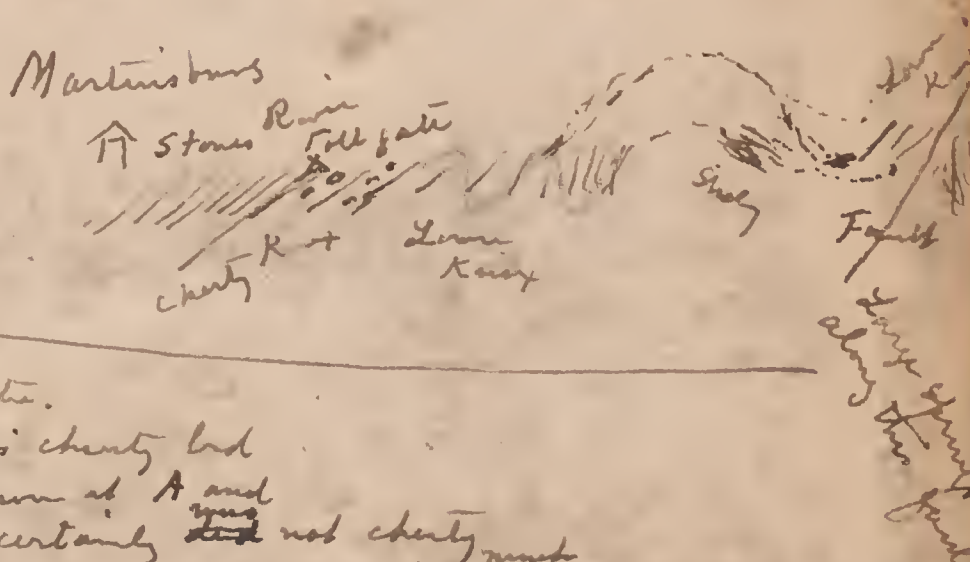 Martinsburg
Stones River
Toll gate
Shaly
Fault
Lower
Knox
cherty
Large spring
along this
fault
cherty bed
at A and
certainly not cherty much